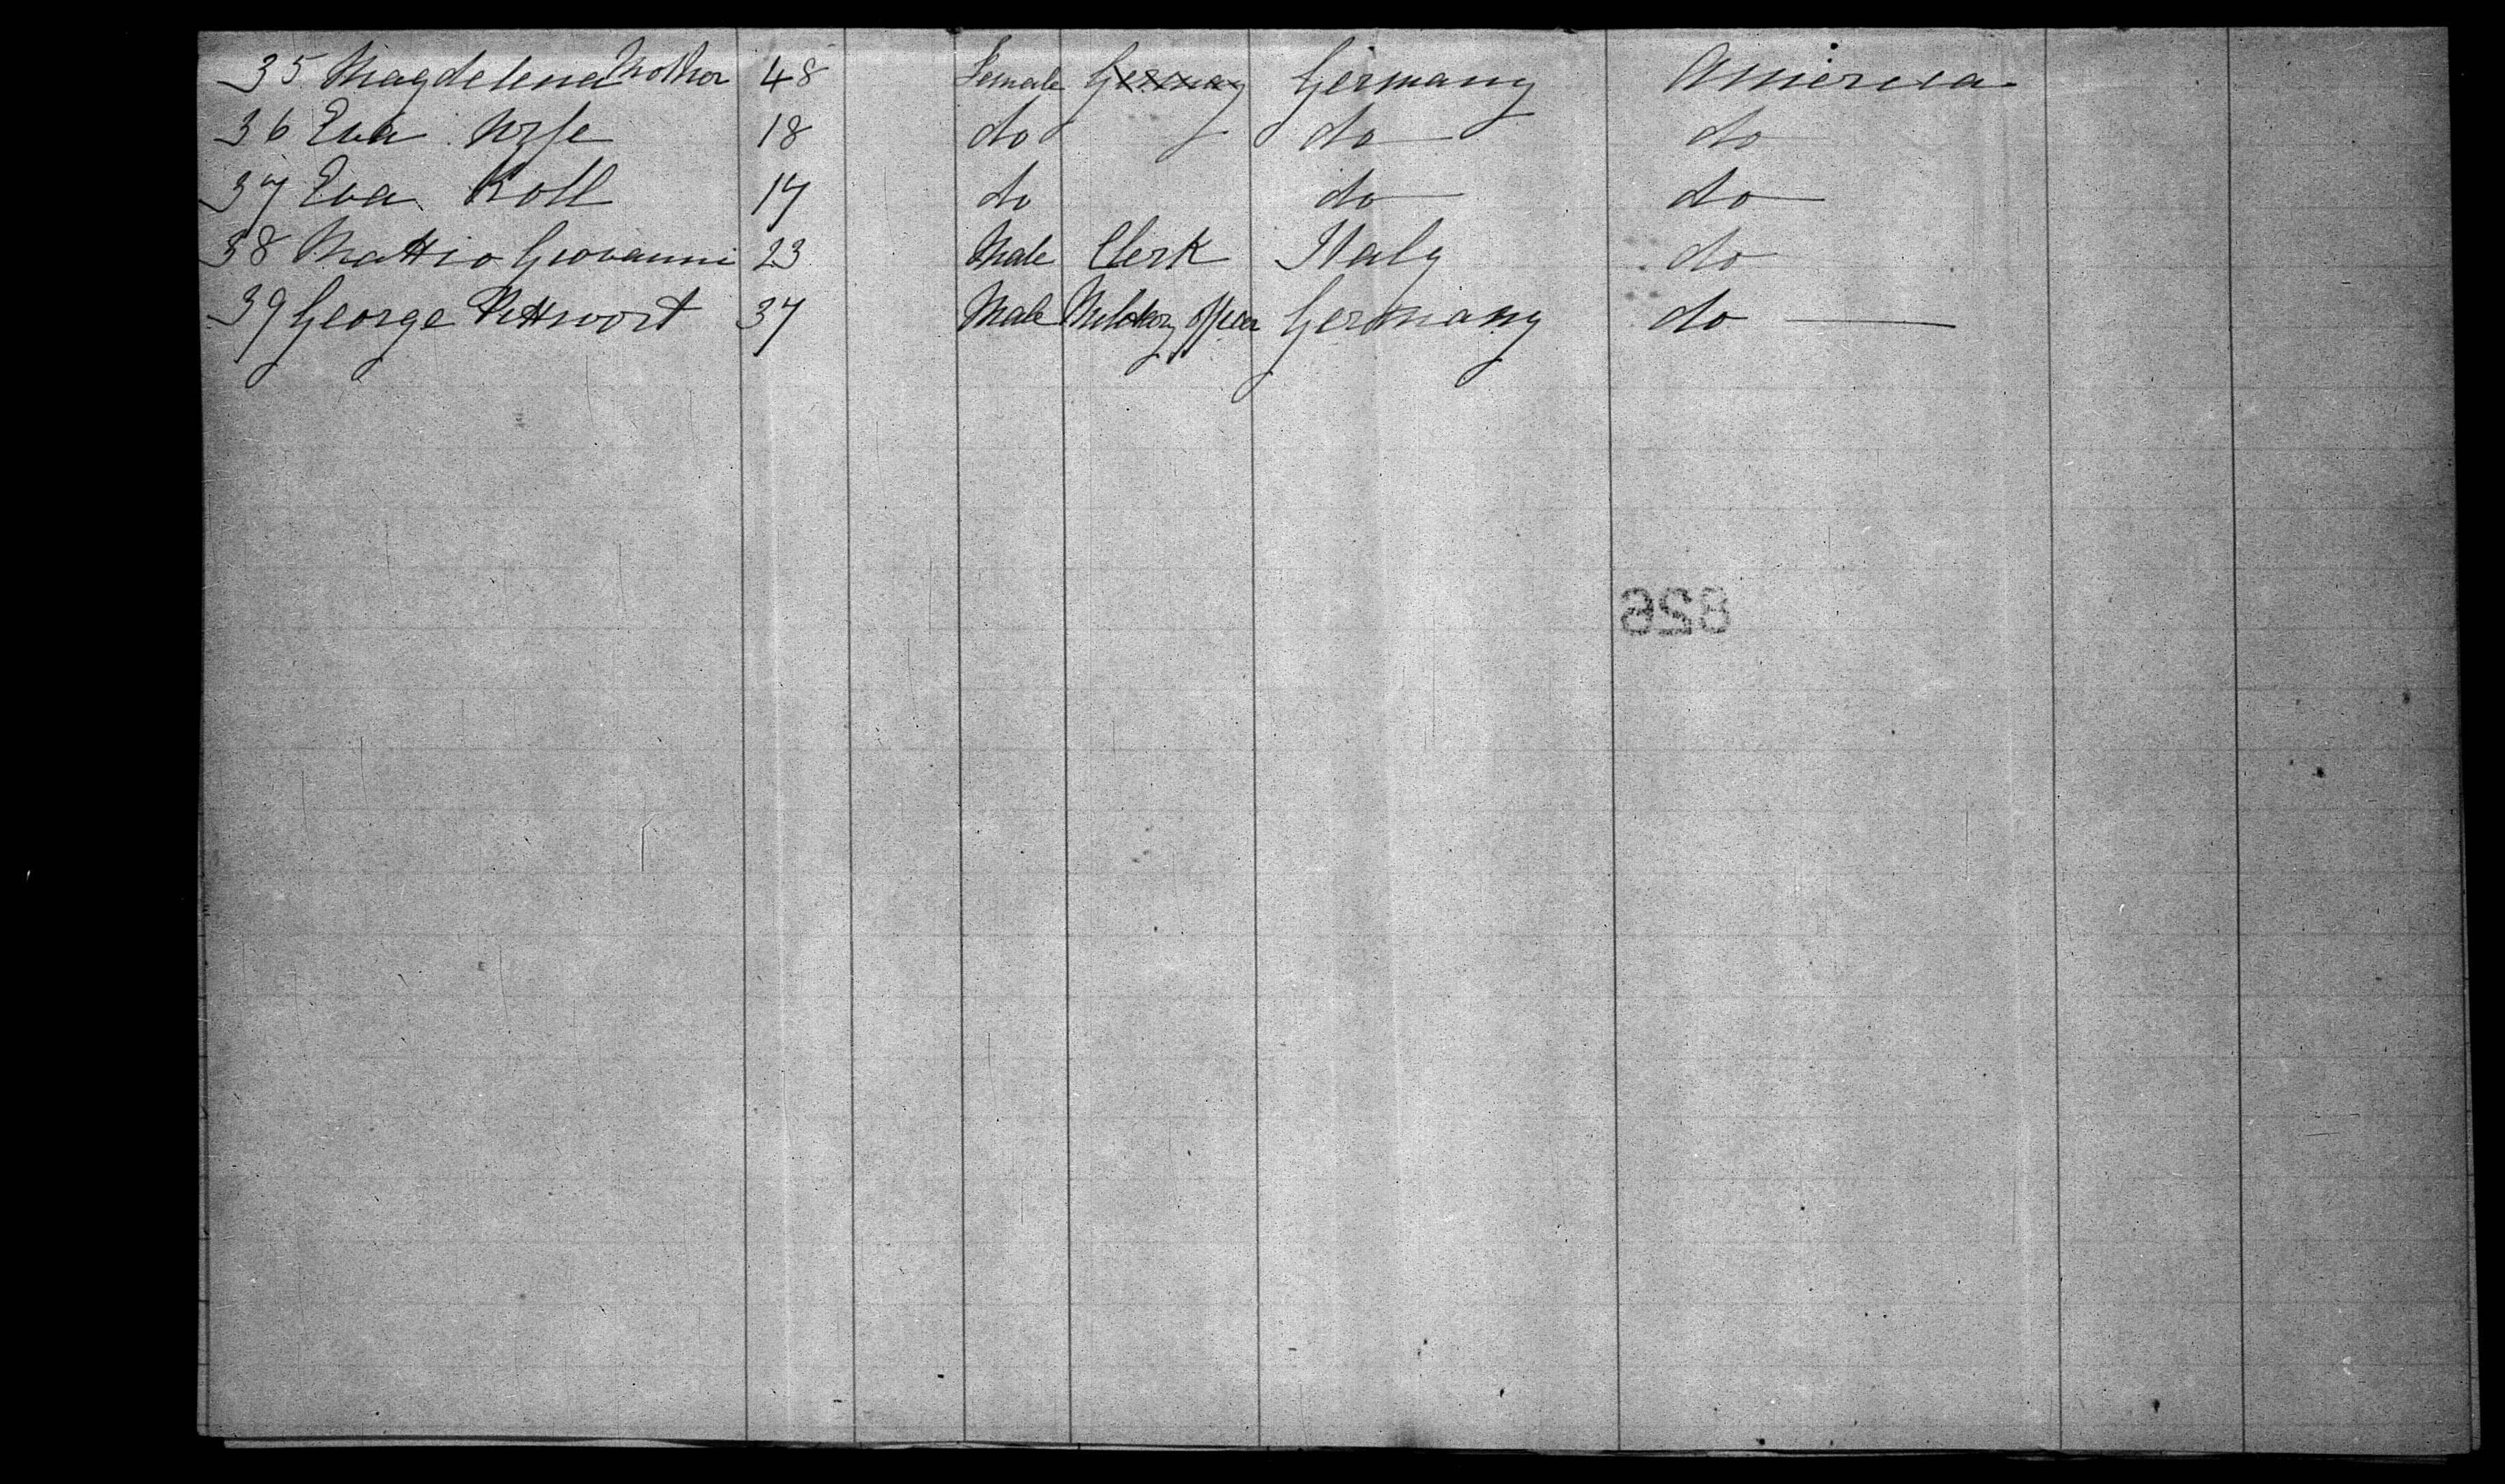 35 Magdelena Mother 48 Female Germany Germany America
36 Eva 18 do do do
37 Eva Roll 17 do do do
38 Mattio Giovanni 23 Male Clerk Italy do
39 George 37 Male Military Officer Germany do
826